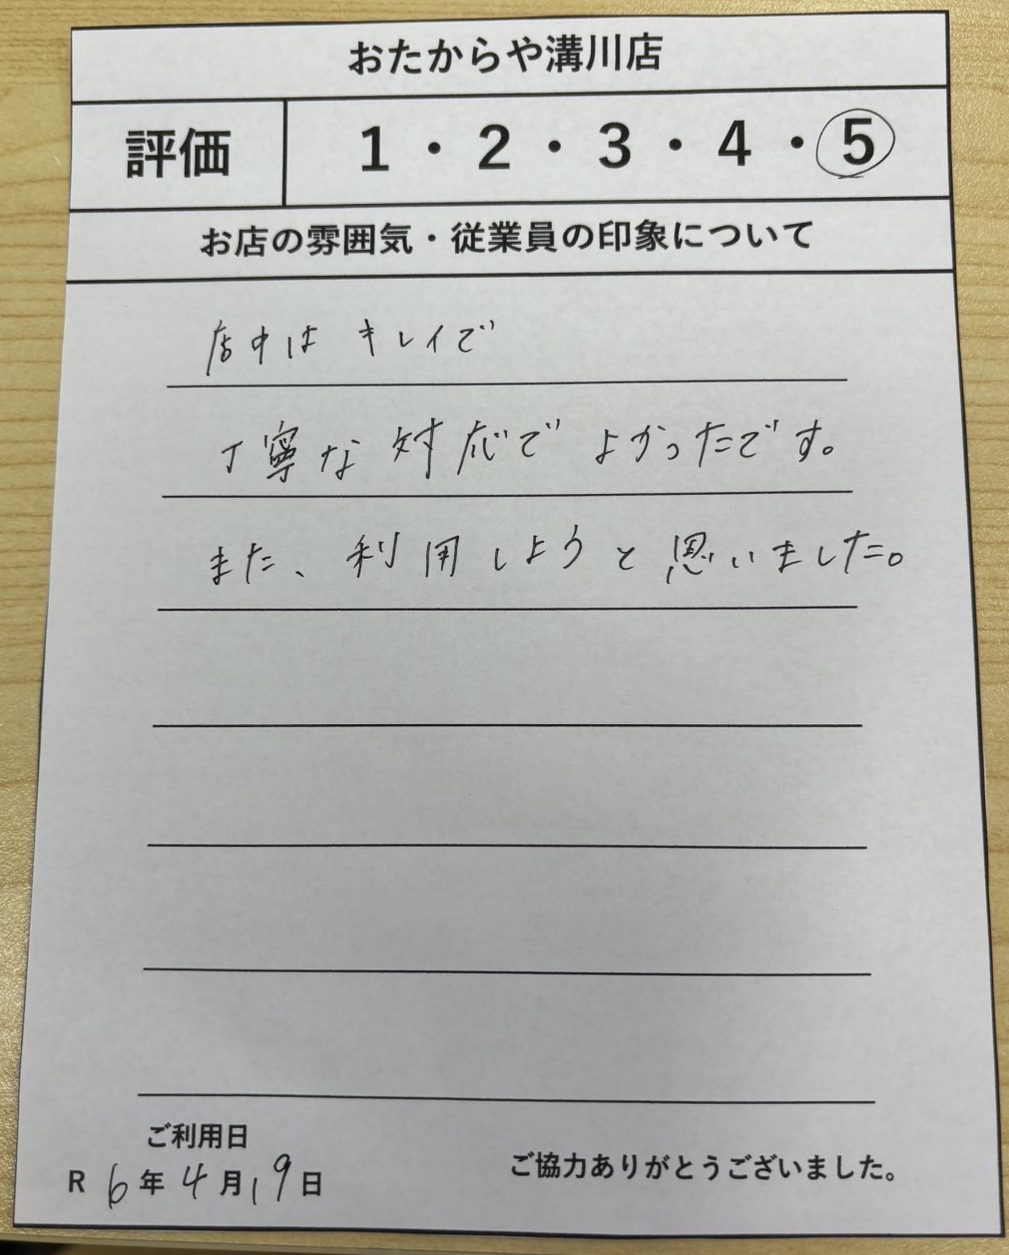 おたからや溝川店
評価 1・2・3・4・5
お店の雰囲気・従業員の印象について
店中は キレイで
丁寧な対応で よかったです。
また、利用しようと思いました。
ご利用日
R 6年 4月 19日
ご協力ありがとうございました。